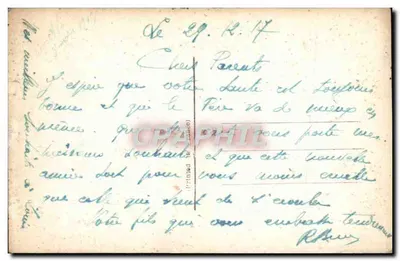 Le 29.12.17
Chers Parents
J'espère que votre santé est toujours
bonne et que le Père va de mieux en
mieux
vous porte mes
souhaits et que cette nouvelle
année soit pour vous moins cruelle
que celle qui vient de s'écouler
Votre fils qui vous embrasse tendrement
Vos meilleurs souhaits à
CPAPHIL